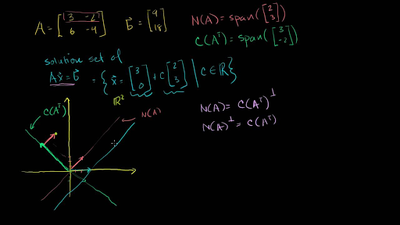 A = [3 -2; 6 -4] b⃗ = [9; 18] N(A) = span([2; 3])
C(Aᵀ) = span([3; -2])
solution set of
Ax⃗ = b⃗ = {x⃗ = [3; 0] + c[2; 3] | c ∈ R}
R²
C(Aᵀ)
N(A)
N(A) = C(Aᵀ)^⊥
N(A)^⊥ = C(Aᵀ)